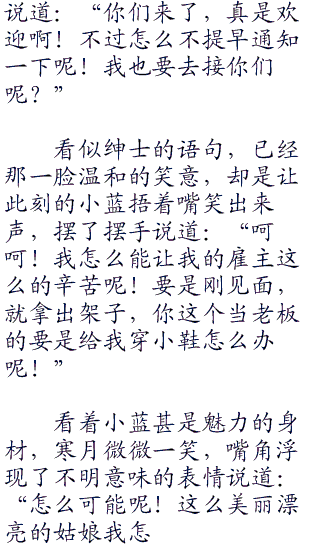 说道：“你们来了，真是欢
迎啊！不过怎么不提早通知
一下呢！我也要去接你们
呢？”
看似绅士的语句，已经
那一脸温和的笑意，却是让
此刻的小蓝捂着嘴笑出来
声，摆了摆手说道：“呵
呵！我怎么能让我的雇主这
么的辛苦呢！要是刚见面，
就拿出架子，你这个当老板
的要是给我穿小鞋怎么办
呢！”
看着小蓝甚是魅力的身
材，寒月微微一笑，嘴角浮
现了不明意味的表情说道：
“怎么可能呢！这么美丽漂
亮的姑娘我怎